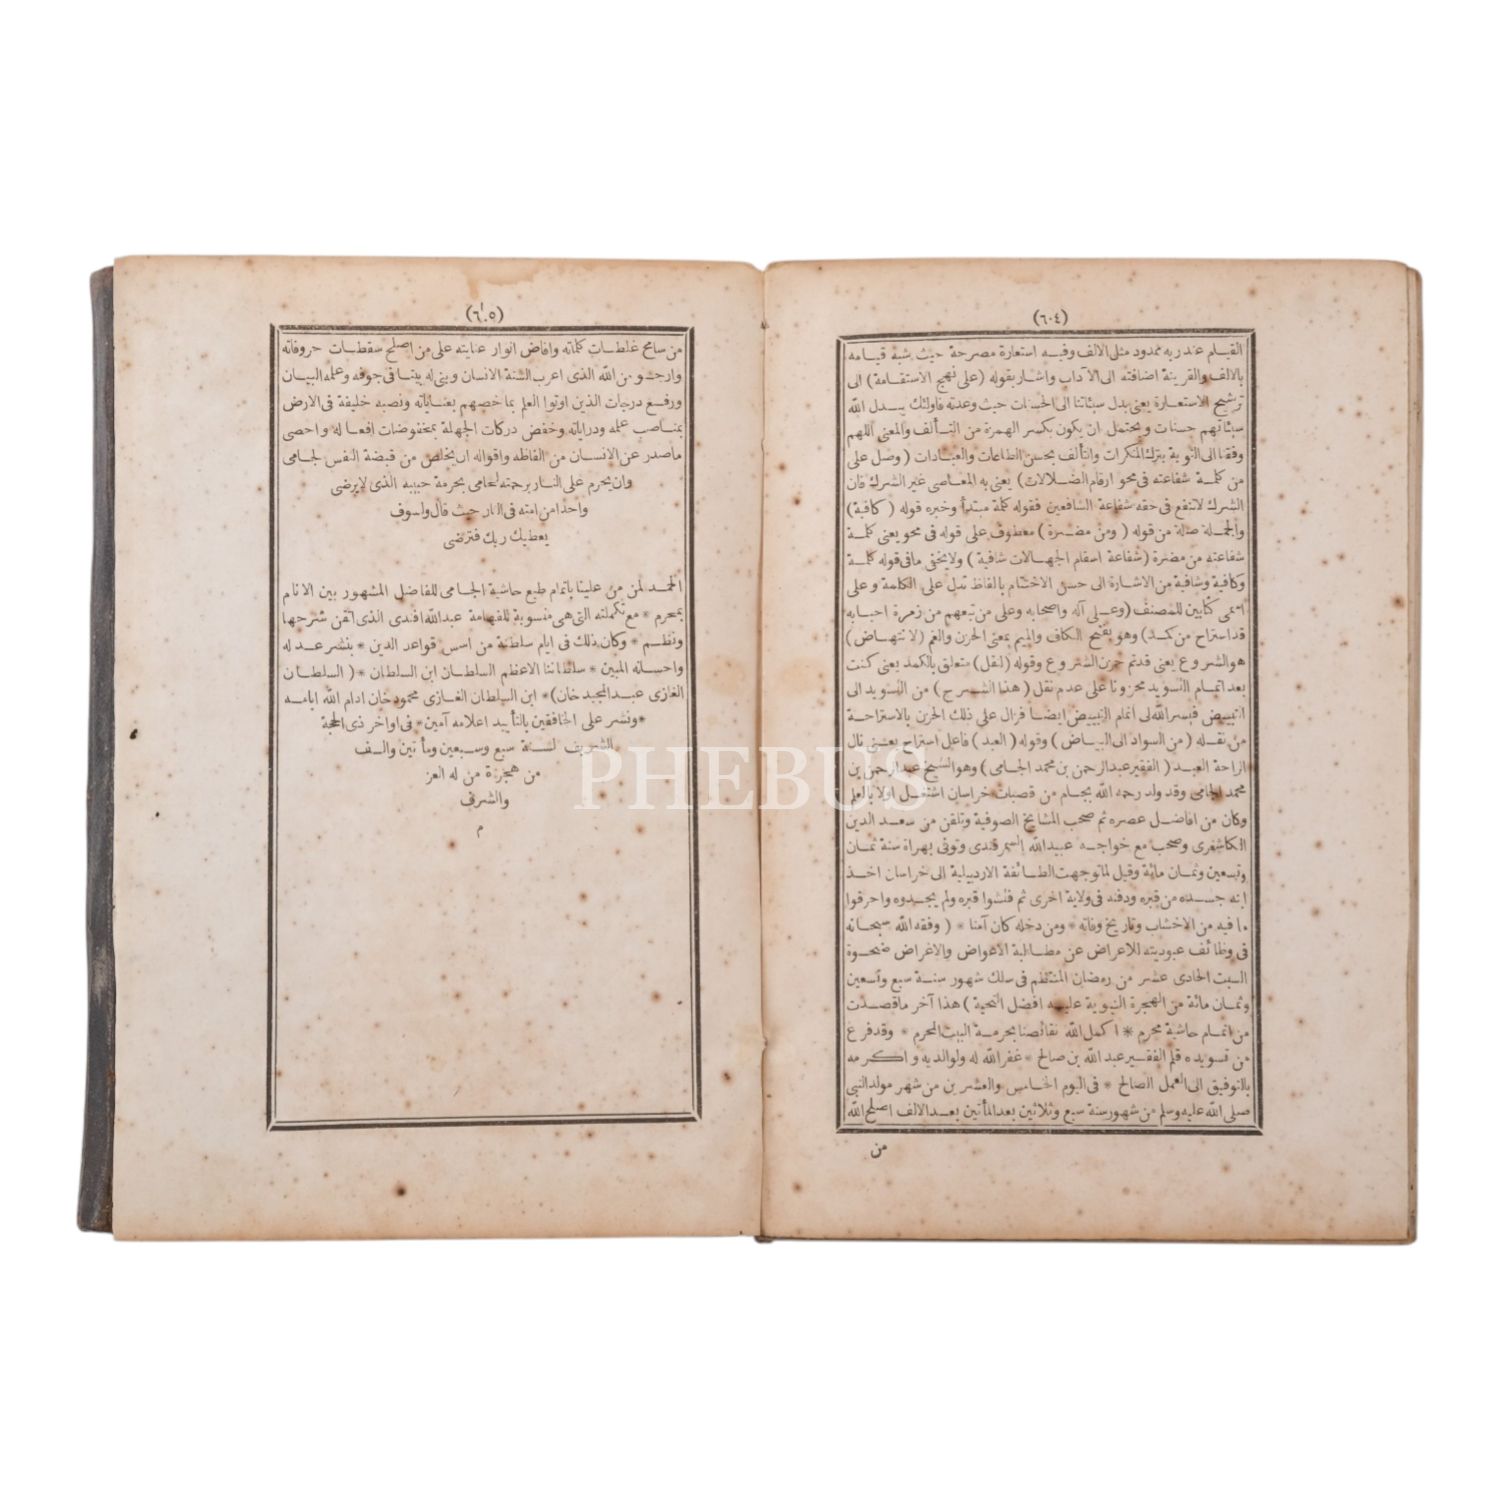 (٦٠٤)
القيام عند ربه ممدود مثل الالف وفيه استعارة مصرحة حيث شبه قيامه
بالالف والقرينة اضافته الى الآداب واشار بقوله (على نهج الاستقامة) الى
ترشيح الاستعارة يعنى بدل سيئاتنا الى الحسنات حيث وعدته فاولئك يبدل الله
سيئاتهم حسنات ويحتمل ان يكون بكسر الهمزة من التألف والمعنى اللهم
وفقنا الى التوبة بترك المنكرات والتألف بحسن الطاعات والعبادات (وصل على
من كلمة شفاعته فى محو ارقام الضلالات) يعنى به المعاصى غير الشرك فان
الشرك لاتنفع فى حقه شفاعة الشافعين فقوله كلمة مبتدأ وخبره قوله (كافية)
والجملة صلة من قوله (ومن مضرة) معطوف على قوله فى محو يعنى كلمة
شفاعته من مضرة (شفاعة اسقام الجهالات شافية) ولايخفى مافى قوله كلمة
وكافية وشافية من الاشارة الى حسن الاختتام بالفاظ تدل على الكلمة وعلى
اسمى كتابين للمصنف (وعلى آله واصحابه وعلى من تبعهم من زمرة احبابه
قد استراح من كمد) وهو بفتح الكاف والميم بمعنى الحزن والغم (لانتهاض)
هو الشروع يعنى قدتم حزن الشروع وقوله (لنقل) متعلق بالكمد يعنى كنت
بعد اتمام التسويد محزونا على عدم نقل (هذا الشرح) من التسويد الى
التبييض فيسر الله لى اتمام التبييض ايضا فزال على ذلك الحزن بالاستراحة
من نقله (من السواد الى البياض) وقوله (العبد) فاعل استراح يعنى نال
الراحة العبد (الفقير عبد الرحمن بن محمد الجامى) وهو الشيخ عبد الرحمن بن
محمد الجامى وقد ولد رحمه الله بجام من قصبات خراسان اشتغل اولا بالعلم
وكان من افاضل عصره ثم صحب المشايخ الصوفية وتلقن من سعد الدين
الكاشغرى وصحب مع خواجه عبيد الله السمرقندى وتوفى بهراة سنة ثمان
وتسعين وثمان مائة وقيل لما توجهت الطائفة الاردبيلية الى خراسان اخذ
ابنه جسده من قبره ودفنه فى ولاية اخرى ثم فتشوا قبره ولم يجدوه واحرقوا
ما فيه من الاخشاب وتاريخ وفاته * ومن دخله كان آمنا * (وفقه الله سبحانه
فى وظائف عبوديته للاعراض عن مطالبة الاعواض والاغراض ضحوة
السبت الحادى عشر من رمضان المنتظم فى سلك شهور سنة سبع وتسعين
وثمان مائة من الهجرة النبوية عليه افضل التحية) هذا آخر ماقصدت
من اتمام حاشية محرم * اكمل الله نقائصنا بحرمة البيت المحرم * وقد فرغ
من تسويده قلم الفقير عبد الله بن صالح * غفر الله له ولوالديه واكرمه
بالتوفيق الى العمل الصالح * فى اليوم الخامس والعشرين من شهر مولد النبى
صلى الله عليه وسلم من شهور سنة سبع وثلاثين بعد المأتين بعد الالف اصلح الله
من
(٦٠٥)
من سامح غلطات كلماته وافاض انوار عنايته على من اصلح سقطات حروفاته
وارجو من الله الذى اعرب السنة الانسان وبنى له بيتا فى جوفه وعلمه البيان
ورفع درجات الذين اوتوا العلم بما خصهم بعناياته ونصبه خليفة فى الارض
بمناصب علمه ودراياته وخفض دركات الجهلة بمخفوضات افعاله واحصى
ماصدر عن الانسان من الفاظه واقواله ان يخلص من قبضة النفس لجامى
وان يحرم على النار برحمته لحامى بحرمة حبيبه الذى لايرضى
واحدا من امته فى النار حيث قال ولسوف
يعطيك ربك فترضى
الحمد لمن من علينا باتمام طبع حاشية الجامى للفاضل المشهور بين الانام
بمحرم * مع تكملته التى هى منسوبة للفهامة عبد الله افندى الذى اتقن شرحها
ونظم * وكان ذلك فى ايام سلطنة من اسس قواعد الدين * بنشر عدله
واحسانه المبين * سلطاننا الاعظم السلطان ابن السلطان * (السلطان
الغازى عبد المجيد خان) * ابن السلطان الغازى محمود خان ادام الله ايامه
* ونشر على الخافقين بالتأييد اعلامه آمين * فى اواخر ذى الحجة
الشريف لسنة سبع وسبعين ومأتين والف
من هجرة من له العز
والشرف
م
PHEBUS